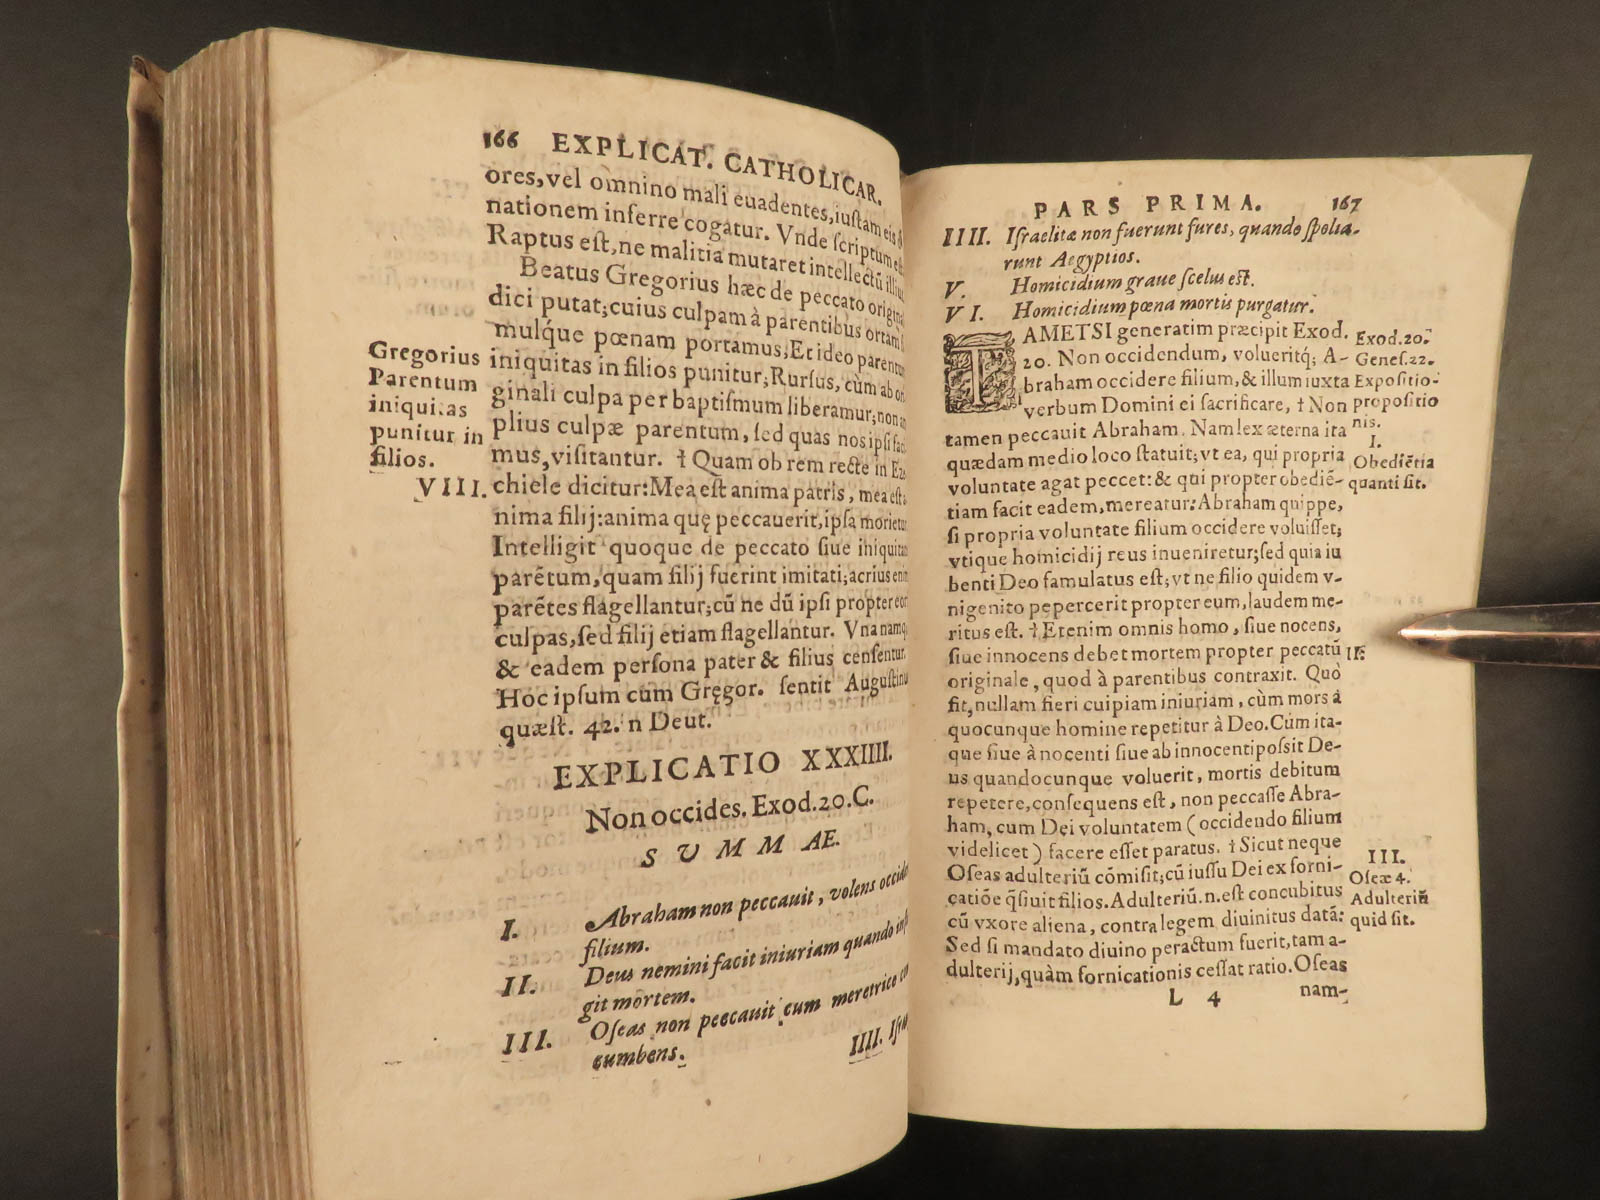 166 EXPLICAT. CATHOLICAR.
ores, vel omnino mali euadentes, iuſtam eis
nationem inferre cogatur. Vnde ſcriptum
Raptus eſt, ne malitia mutaret intellectũ
Beatus Gregorius hæc de peccato
dici putat; cuius culpam à parentibus
mulq́ue pœnam portamus; Et ideo
iniquitas in filios punitur; Rurſus, cùm ab
ginali culpa per baptiſmum liberamur; non
plius culpæ parentum, ſed quas nos ipſi
mus, viſitantur. † Quam ob rem recte in
chiele dicitur: Mea eſt anima patris, mea eſt
nima filij: anima quę peccauerit, ipſa
Intelligit quoque de peccato ſiue
parẽtum, quam filij fuerint imitati; acrius
parẽtes flagellantur; cũ ne dũ ipſi propter
culpas, ſed filij etiam flagellantur. Vna
& eadem perſona pater & filius cenſentur.
Hoc ipſum cum Gręgor. ſentit
quæſt. 42. in Deut.
Gregorius
Parentum
iniquitas
punitur in
filios.
VIII.
EXPLICATIO XXXIIII.
Non occides. Exod. 20. C.
SVMMAE.
I. Abraham non peccauit, volens
filium.
II. Deus nemini facit iniuriam quando
git mortem.
III. Oſeas non peccauit cum meretrice
cumbens.
IIII.
PARS PRIMA. 167
IIII. Iſraelitæ non fuerunt fures, quando ſpolia-
runt Aegyptios.
V. Homicidium graue ſcelus eſt.
VI. Homicidium pœna mortis purgatur.
TAMETSI generatim præcipit Exod.
20. Non occidendum, volueritq́; A-
braham occidere filium, & illum iuxta
verbum Domini ei ſacrificare, † Non
tamen peccauit Abraham. Nam lex æterna ita
quædam medio loco ſtatuit; vt ea, qui propria
voluntate agat peccet: & qui propter obediẽ-
tiam facit eadem, mereatur: Abraham quippe,
ſi propria voluntate filium occidere voluiſſet;
vtique homicidij reus inueniretur; ſed quia iu
benti Deo famulatus eſt; vt ne filio quidem v-
nigenito pepercerit propter eum, laudem me-
ritus eſt. † Etenim omnis homo, ſiue nocens,
ſiue innocens debet mortem propter peccatũ
originale, quod à parentibus contraxit. Quò
fit, nullam fieri cuipiam iniuriam, cùm mors à
quocunque homine repetitur à Deo. Cùm ita-
que ſiue à nocenti ſiue ab innocenti poſsit De-
us quandocunque voluerit, mortis debitum
repetere, conſequens eſt, non peccaſſe Abra-
ham, cum Dei voluntatem (occidendo filium
videlicet) facere eſſet paratus. † Sicut neque
Oſeas adulteriũ cõmiſit; cũ iuſſu Dei ex forni-
catiõe q̃ſiuit filios. Adulteriũ. n. eſt concubitus
cũ vxore aliena, contra legem diuinitus datã:
Sed ſi mandato diuino peractum fuerit, tam a-
dulterij, quàm fornicationis ceſſat ratio. Oſeas
L 4 nam-
Exod. 20.
Geneſ. 22.
Expoſitio-
propoſitio
nis.
I.
Obediẽtia
quanti ſit.
II.
III.
Oſeæ 4.
Adulteriũ
quid ſit.